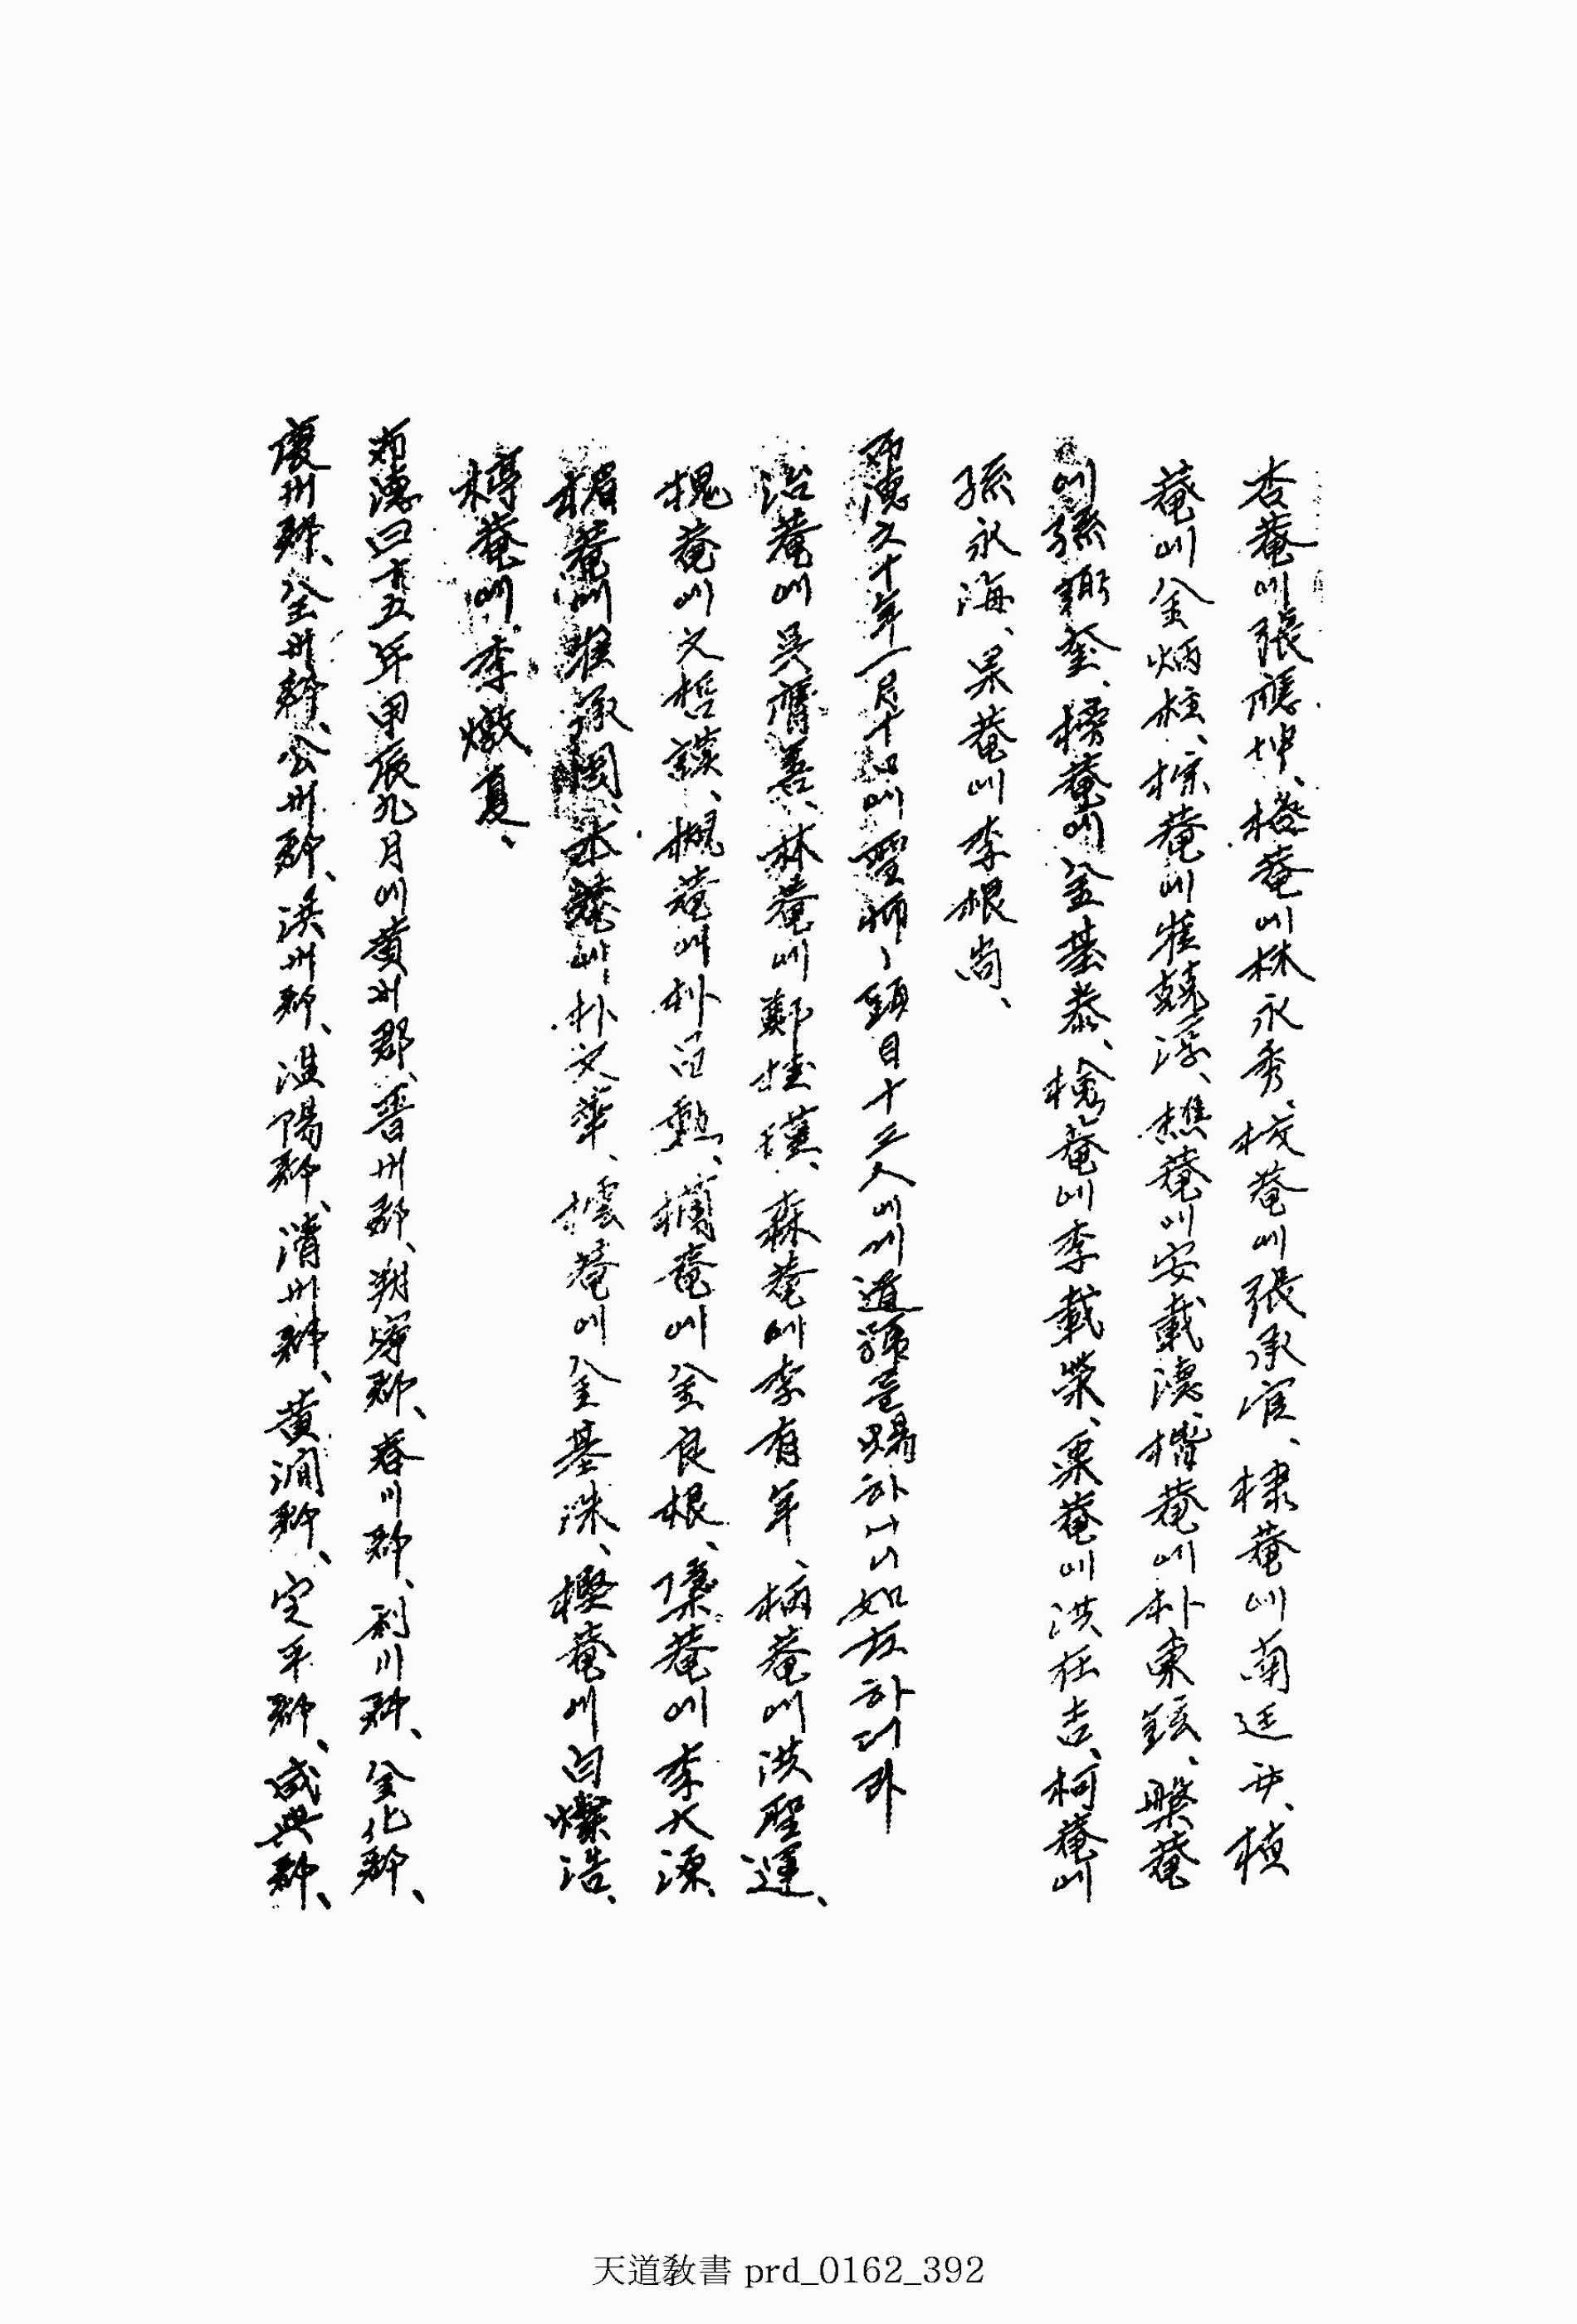 杏菴에張應坤、橙菴에林永秀、核菴에張承官、棣菴에南廷, 楨
菴에金炳柱、棕菴에崔兢淳、樵菴에安載德、楷菴에朴東鉉、槃菴
에孫, 榜菴에金基泰、檎菴에李載榮、栗菴에洪在吉、柯菴에
孫永海、杲菴에李根尚、
布德五十年一月十四에聖師、頭目十五人에에道號를賜하시니如左하더라
治菴에吳膺善、林菴에鄭桂瓘、森菴에李有年、柄菴에洪聖運、
槐菴에文哲謨、楓菴에朴, 金良根、菴에李大源、
楣菴에崔承國、菴에朴文華、樗菴에金基洙、樫菴에白燦浩、
樽菴에李燉夏、
布德四十五年甲辰九月에黃州郡、晋州郡、朔寧郡、春川郡、利川郡、金化郡、
慶州郡、全州郡、公州郡、洪州郡、淮陽郡、清州郡、黃澗郡、定平郡、咸興郡、
天道敎書 prd_0162_392